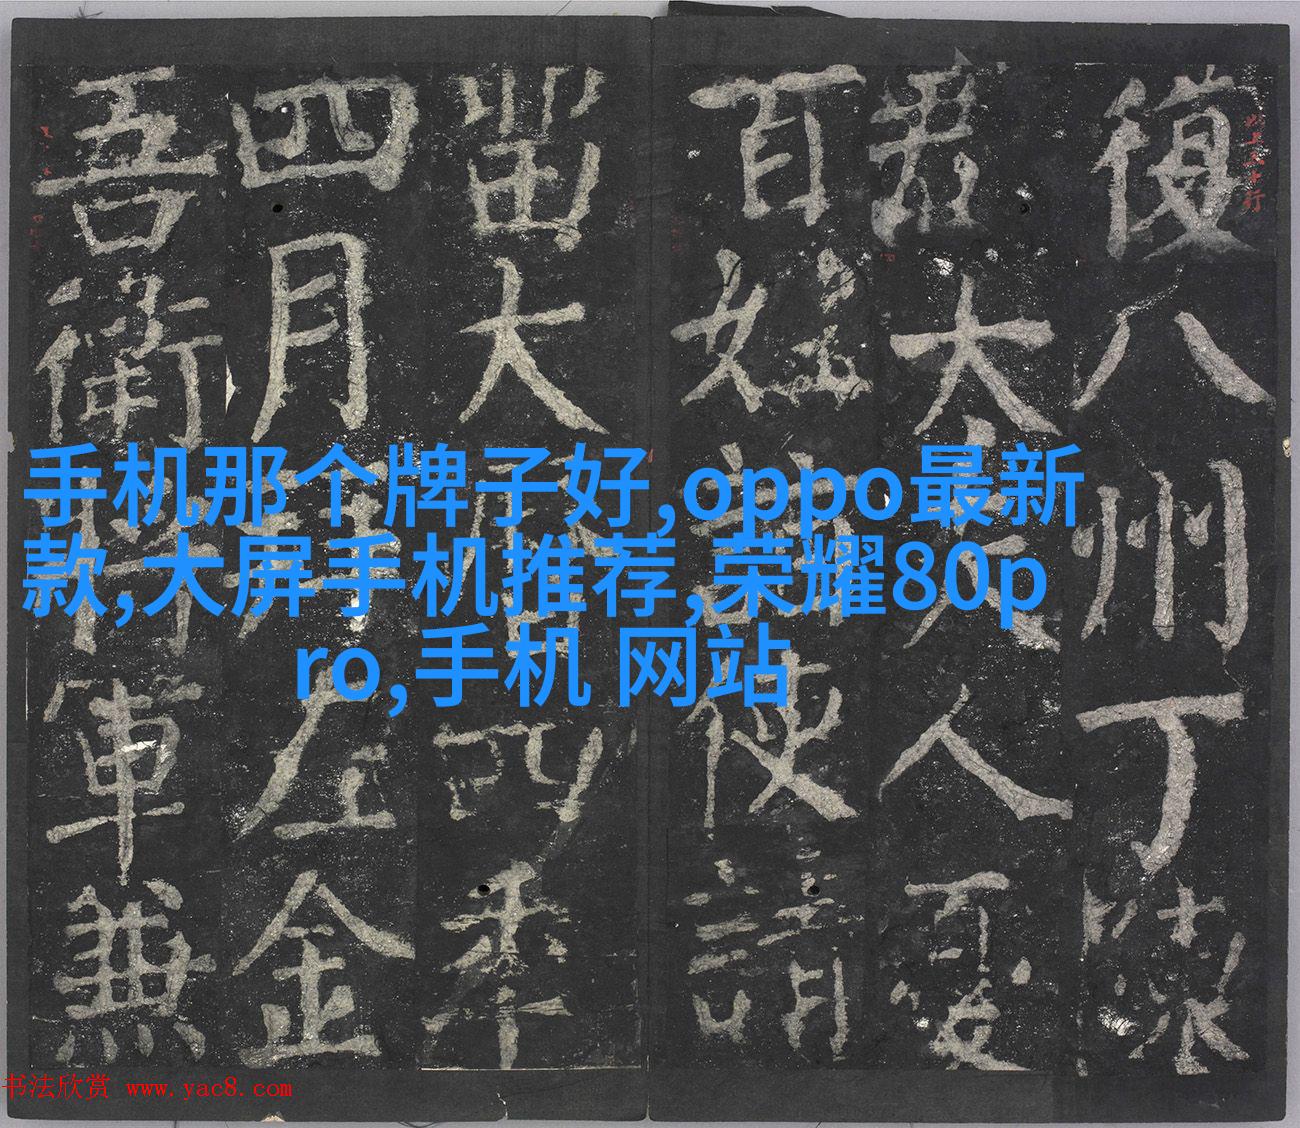 手机那个牌子好,oppo最新
款,大屏手机推荐,荣耀80p
ro,手机 网站
復八州丁陳
君太夫人憂
百姓詣使請
留大曆四年
四月轉左金
吾衛將軍兼
书法欣赏 www.yac8.com